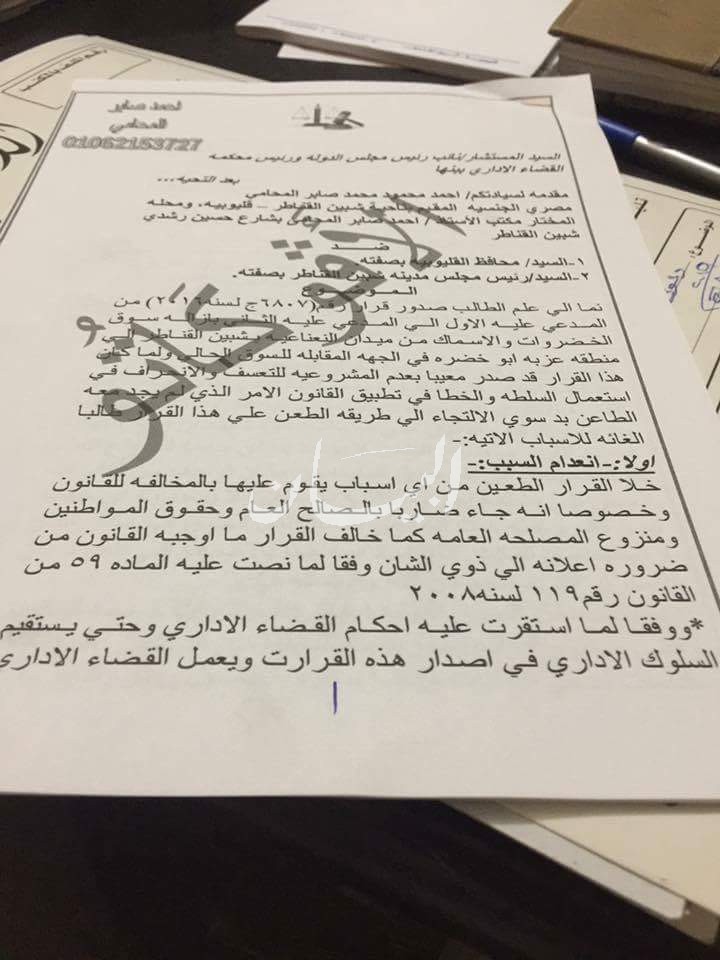 احمد صابر
المحامي
01062153727
السيد المستشار/نائب رئيس مجلس الدوله ورئيس محكمه
القضاء الاداري ببنها
بعد التحيه...
مقدمه لسيادتكم/ احمد محمود محمد صابر المحامي
مصري الجنسيه المقيم بناحية شبين القناطر – قليوبيه، ومحله
المختار مكتب الأستاذ / احمد صابر المحامي بشارع حسين رشدي
شبين القناطر
ضد
١-السيد/ محافظ القليوبية بصفته.
٢-السيد/رئيس مجلس مدينه شبين القناطر بصفته.
الموضوع
نما الي علم الطالب صدور قرار رقم(٦٨٠٧ج لسنه٢٠١٦) من
المدعي عليه الاول الي المدعي عليه الثاني بازاله سوق
الخضروات والاسماك من ميدان النعناعيه بشبين القناطر الي
منطقه عزبه ابو خضره في الجهه المقابله للسوق الحالي ولما كان
هذا القرار قد صدر معيبا بعدم المشروعيه للتعسف والانحراف في
استعمال السلطه والخطا في تطبيق القانون الامر الذي لم يجد معه
الطاعن بد سوي الالتجاء الي طريقه الطعن علي هذا القرار طالبا
الغائه للاسباب الاتيه:-
اولا:-انعدام السبب:-
خلا القرار الطعين من اي اسباب يقوم عليها بالمخالفه للقانون
وخصوصا انه جاء ضاربا بالصالح العام وحقوق المواطنين
ومنزوع المصلحه العامه كما خالف القرار ما اوجبه القانون من
ضروره اعلانه الي ذوي الشان وفقا لما نصت عليه الماده ٥٩ من
القانون رقم١١٩ لسنه٢٠٠٨
*ووفقا لما استقرت عليه احكام القضاء الاداري وحتي يستقيم
السلوك الاداري في اصدار هذه القرارت ويعمل القضاء الاداري
البيان